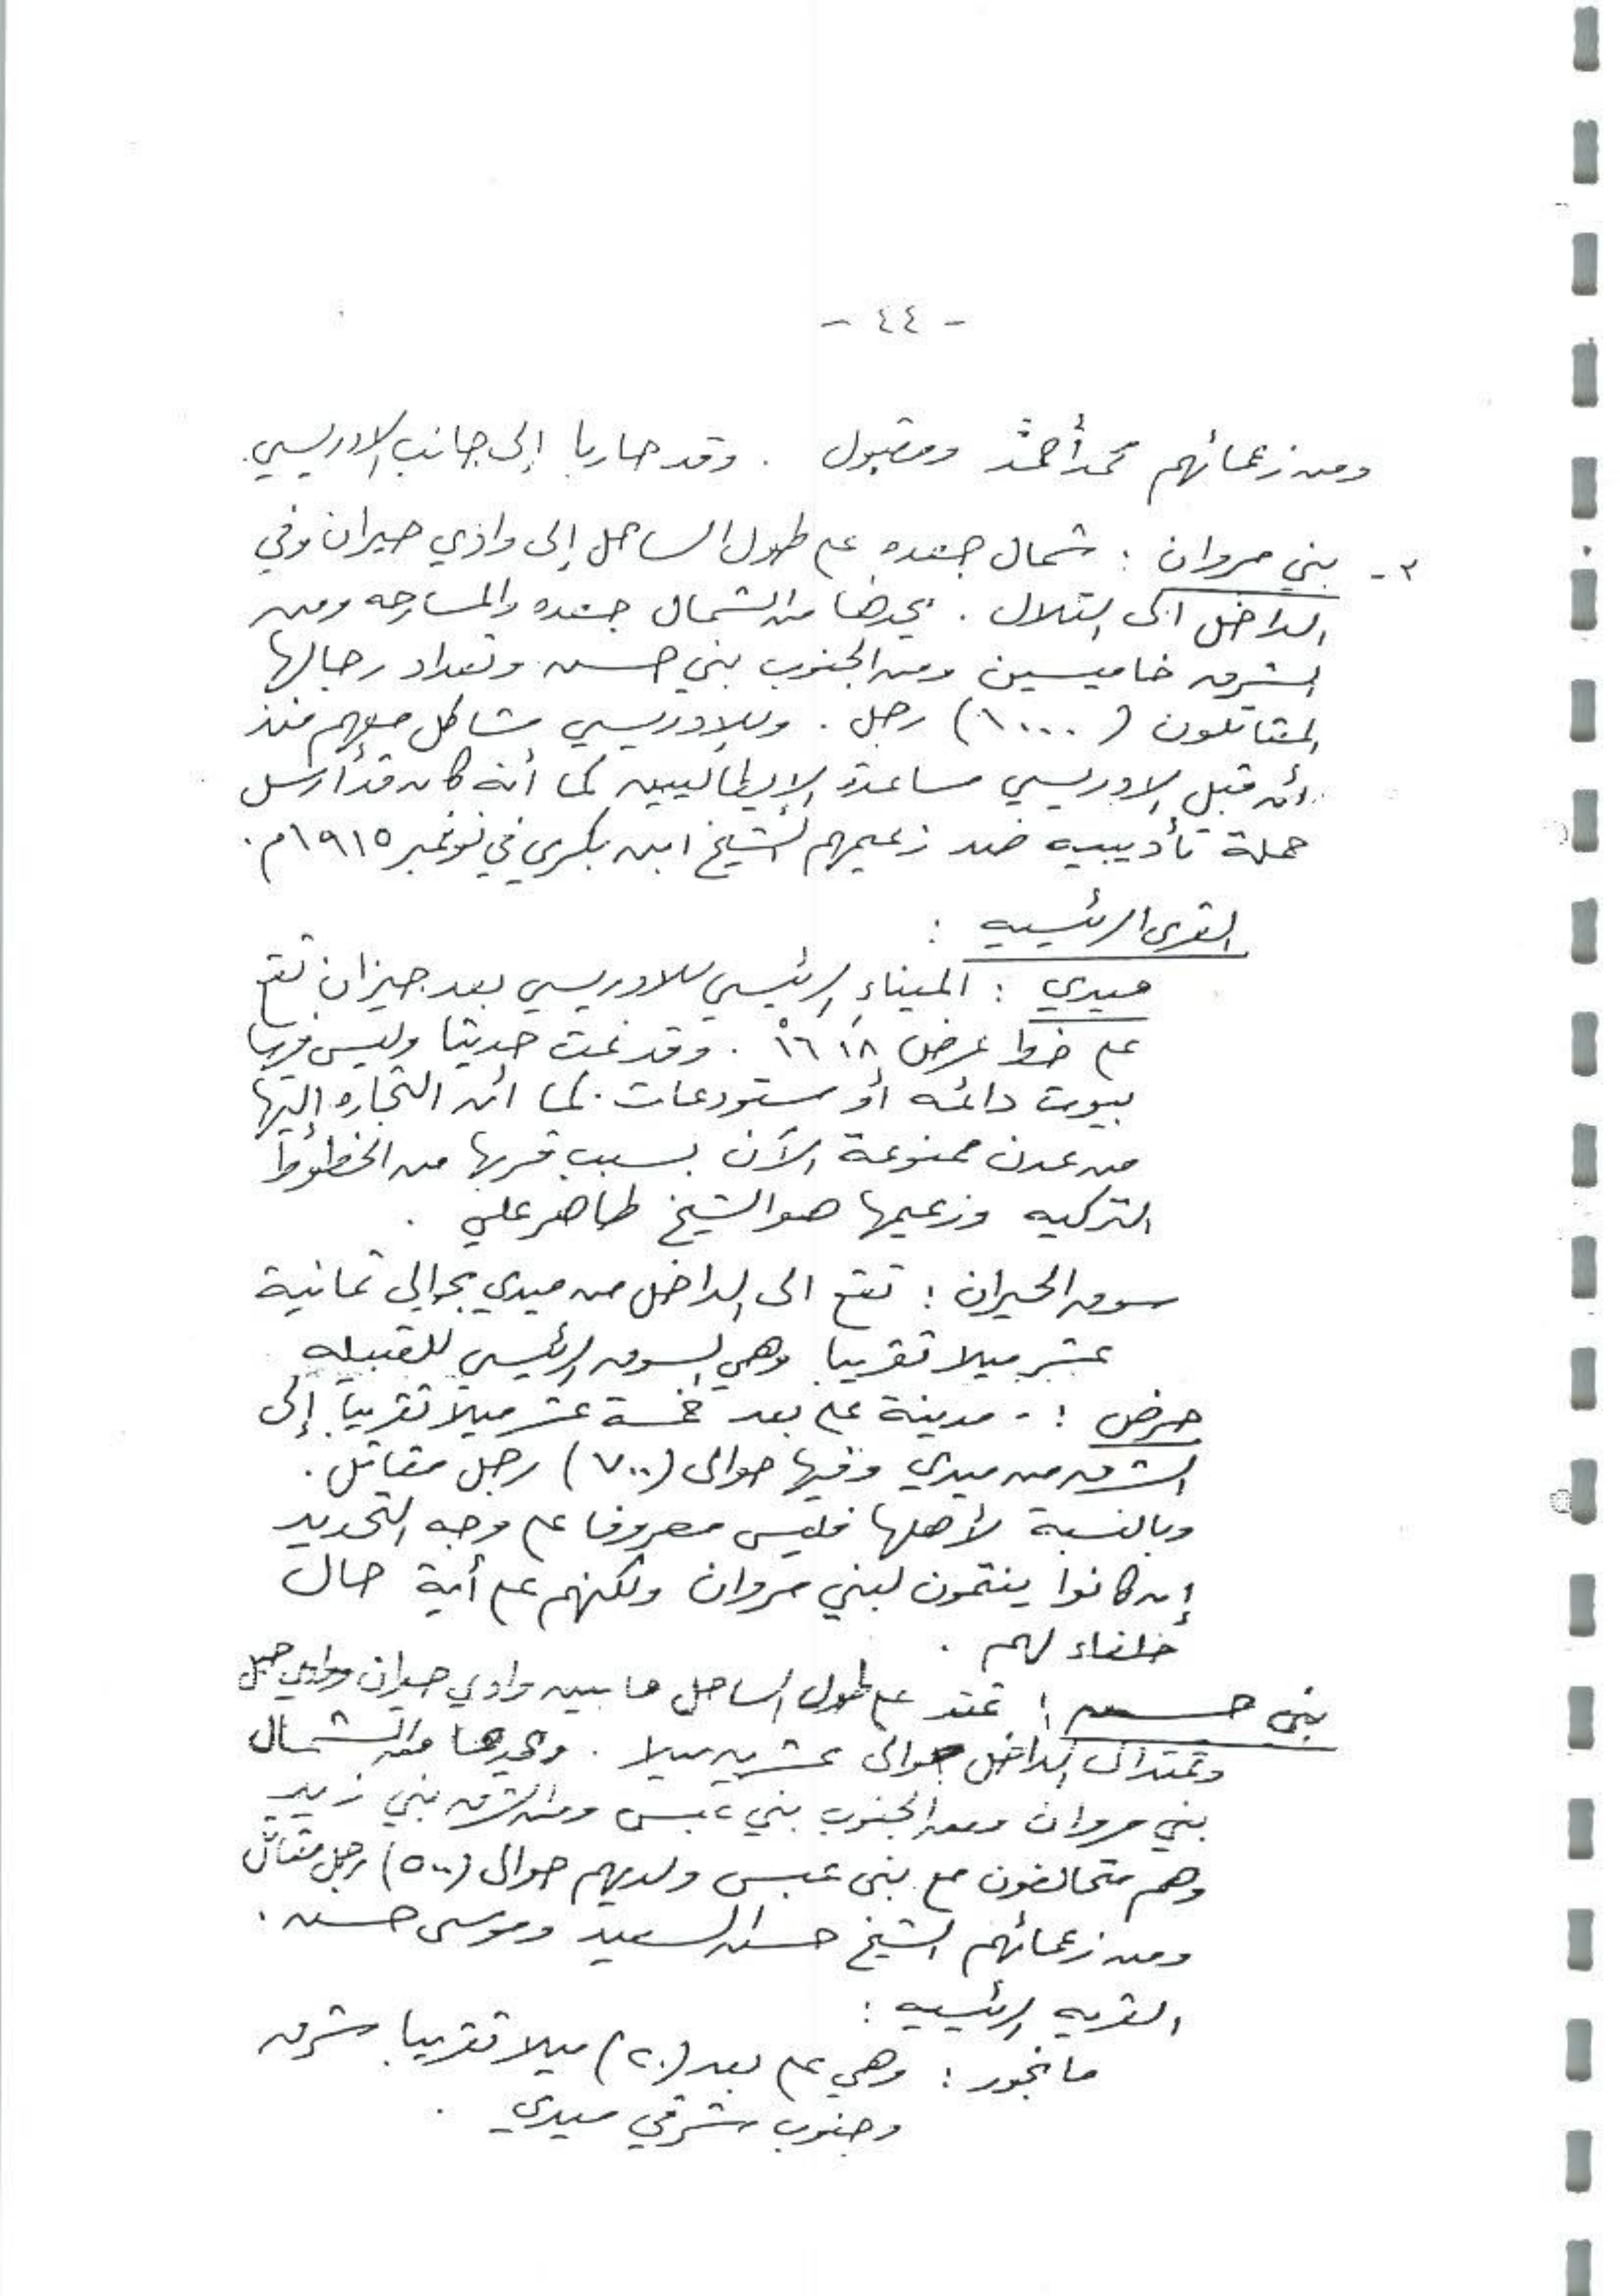 - ٤٤ -
ومن زعمائهم محمد أحمد ومقبول . وقد حاربا إلى جانب الادريسي .
٣- بني مروان : شمال جعده على طول الساحل إلى وادي حيران وفي
الداخل الى التلال . يحدها من الشمال جعده والمسارحه ومن
الشرق خاميسين ومن الجنوب بني حسن وتعداد رجالها
المقاتلون (١٠٠٠٠) رجل . وللادريسي مشاكل معهم منذ
أن قبل الادريسي مساعدة الإيطاليين كما أنه كان قد أرسل
حملة تأديبيه ضد زعيمهم الشيخ ابن بكري في نوفمبر ١٩١٥م .
القرى الرئيسيه :
ميدي : الميناء الرئيسي للادريسي بعد جيزان تقع
على خط عرض ١٨ ١٦ . وقد نمت حديثا وليس فيها
بيوت دائمه أو مستودعات . كما ان التجاره إليها
من عدن ممنوعة الآن بسبب قربها من الخطوط
التركيه وزعيمها هو الشيخ طاهر علي .
سوق الحيران : تقع الى الداخل من ميدي بحوالي ثمانية
عشر ميلا تقريبا وهي السوق الرئيسي للقبيله
حرض : - مدينة على بعد خمسة عشر ميلاً تقريباً إلى
الشرق من ميدي وفيها حوالى (٧٠٠) رجل مقاتل .
وبالنسبة لأهلها فليس معروفا على وجه التحديد
إن كانوا ينتمون لبني مروان ولكنهم على أية حال
خلفاء لهم .
بني حسن : تمتد على طول الساحل ما بين وادي حيران ووادي حبل
وتمتد الى الداخل حوالى عشرين ميلا . ويحدها من الشمال
بني مروان ومن الجنوب بني عبس ومن الشرق بني زيد
وهم متحالفون مع بنى عبس ولديهم حوالى (٥٠٠) رجل مقاتل
ومن زعمائهم الشيخ حسن السعيد وموسى حسن .
القريه الرئيسيه :
مانجور : وهي على بعد (٢٠) ميلا تقريبا شرق
وجنوب شرقي ميدي .